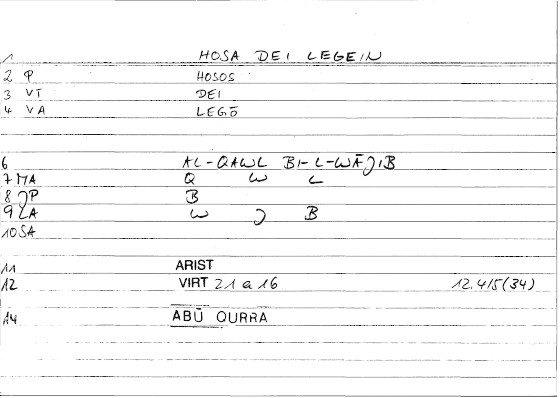 1 HOSA DEI LEGEIN
2 P HOSOS
3 VT DEI
4 VA LEGŌ
6 AL-QAWL BI-L-WĀJIB
7 MA Q W L
8 JP B
9 LA W J B
10 SA
11 ARIST
12 VIRT 21 a 16 12.4/5(34)
14 ABŪ QURRA